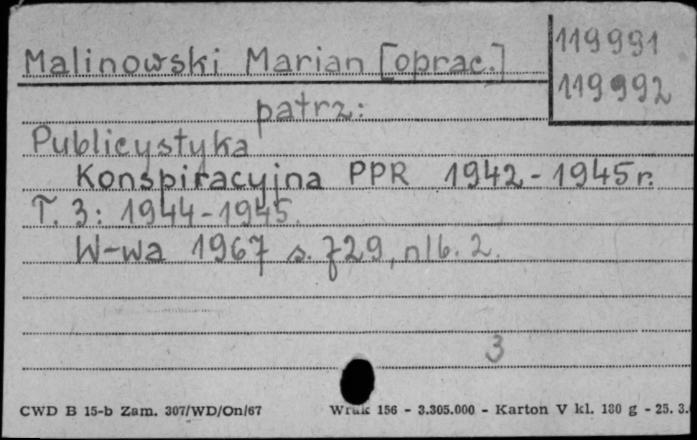 Malinowski Marian [oprac.]
119991
119992
patrz:
Publicystyka
Konspiracyjna PPR 1942-1945r.
T. 3: 1944-1945.
W-wa 1967 s. 729, nlb. 2.
3
CWD B 15-b Zam. 307/WD/On/67 Wrak 156 - 3.305.000 - Karton V kl. 180 g - 25. 3.